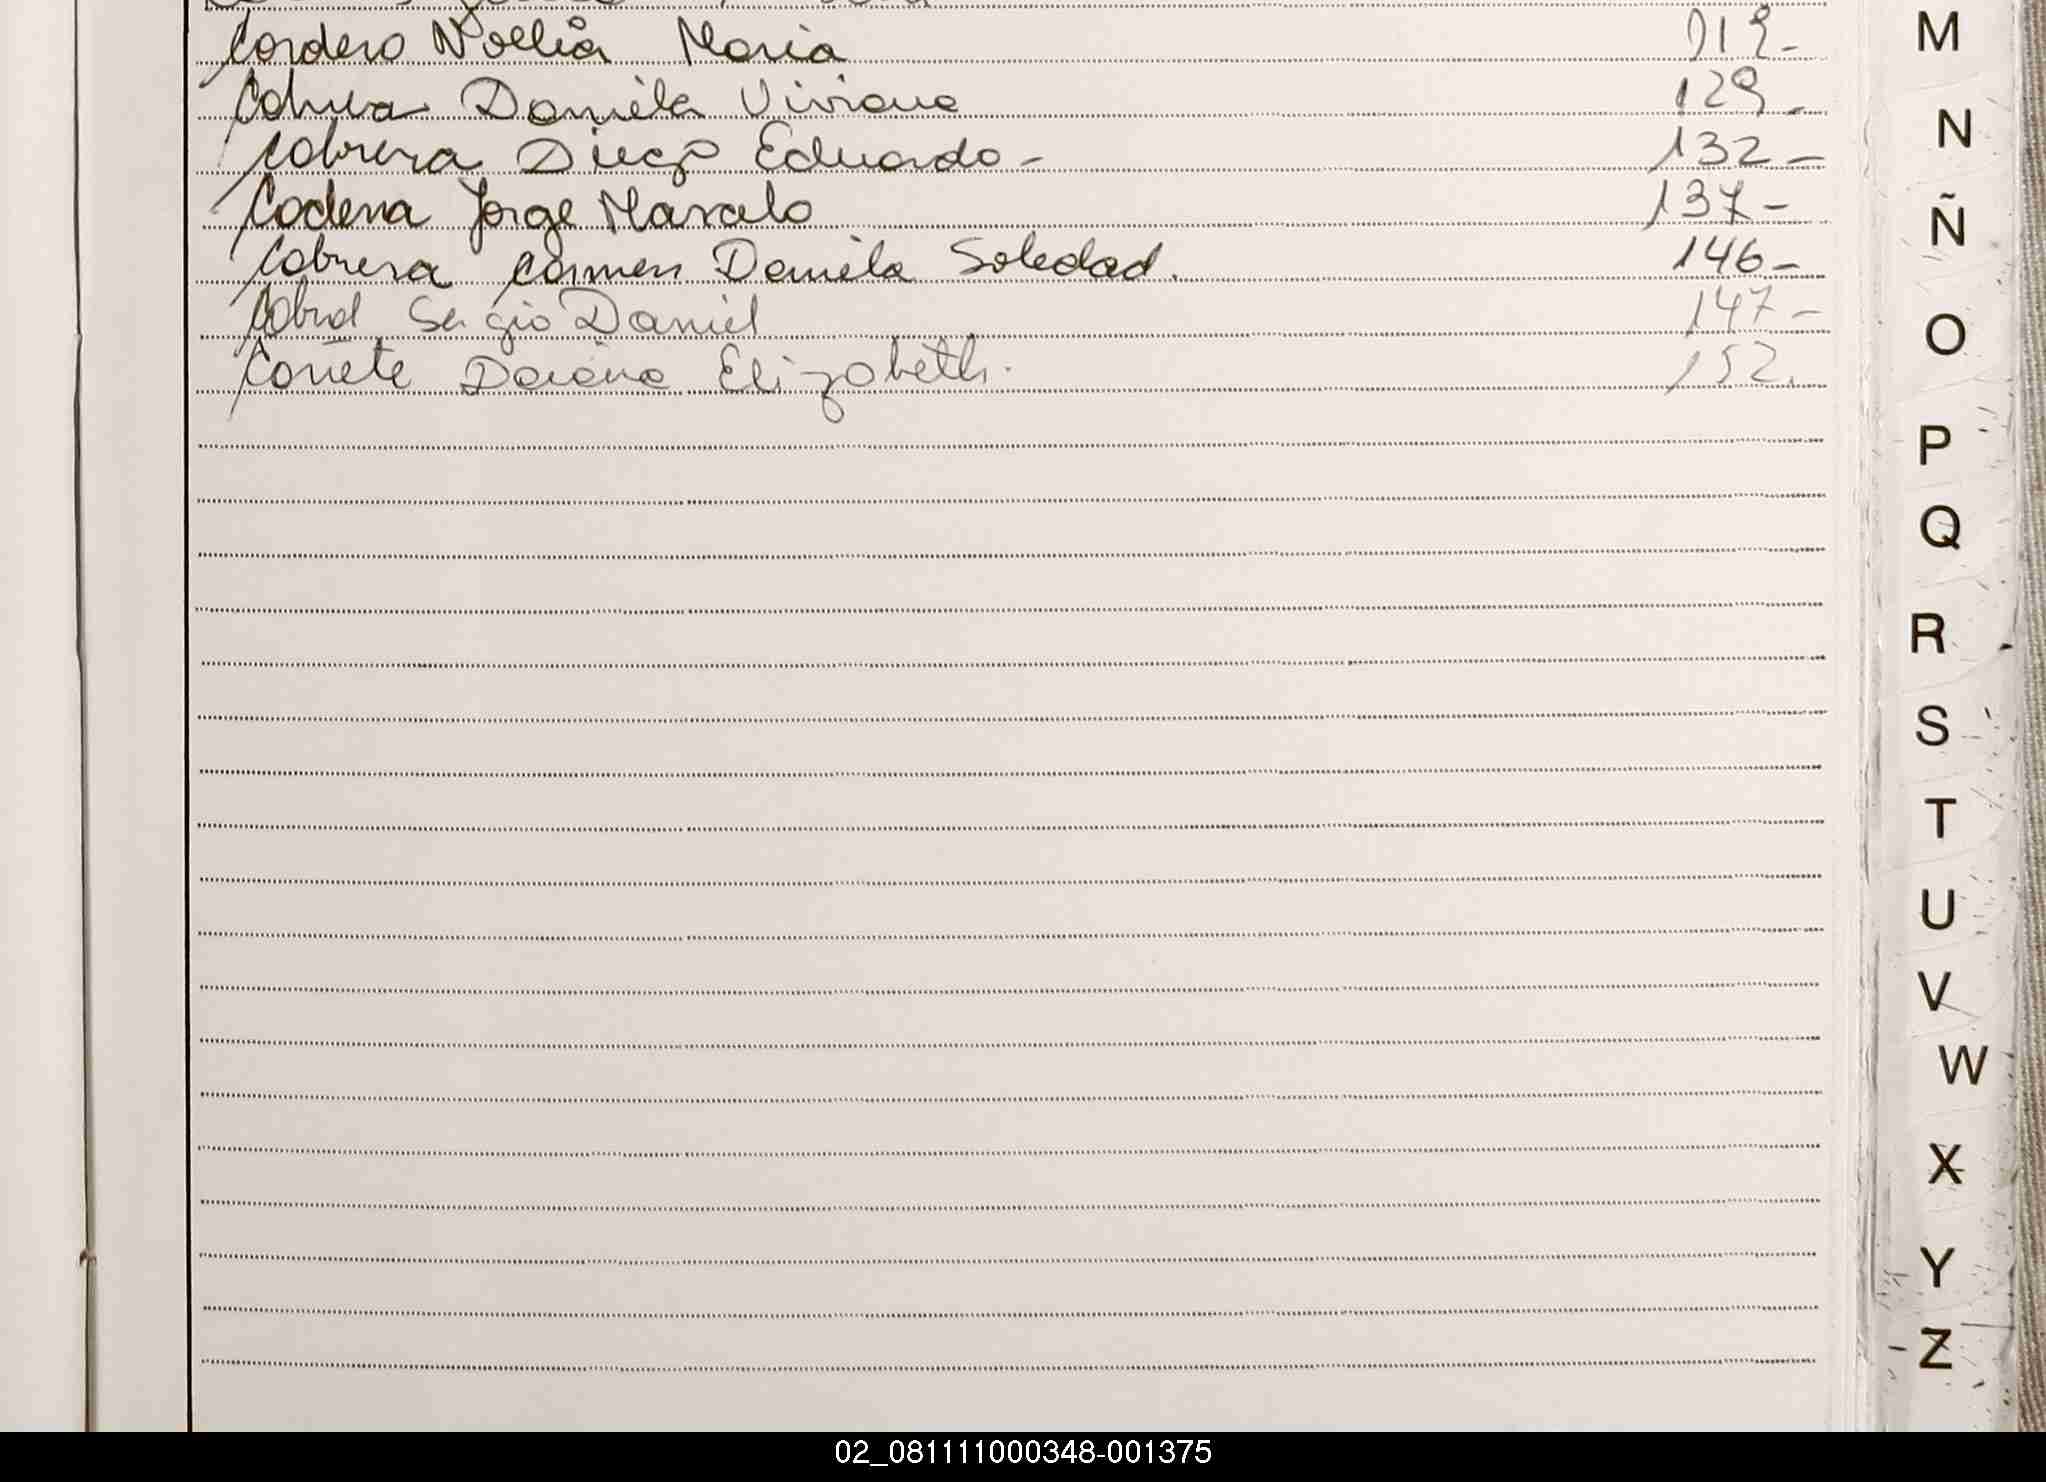 Cordero Noelia Maria 119-
Cabrera Daniela Viviana 129-
Cabrera Diego Eduardo - 132-
Cadena Jorge Marcelo 137-
Cabrera Carmen Daniela Soledad. 146-
Cabral Sergio Daniel 147-
Cañete Daiana Elizabeth. 152.
M
N
Ñ
O
P
Q
R
S
T
U
V
W
X
Y
Z
02_081111000348-001375